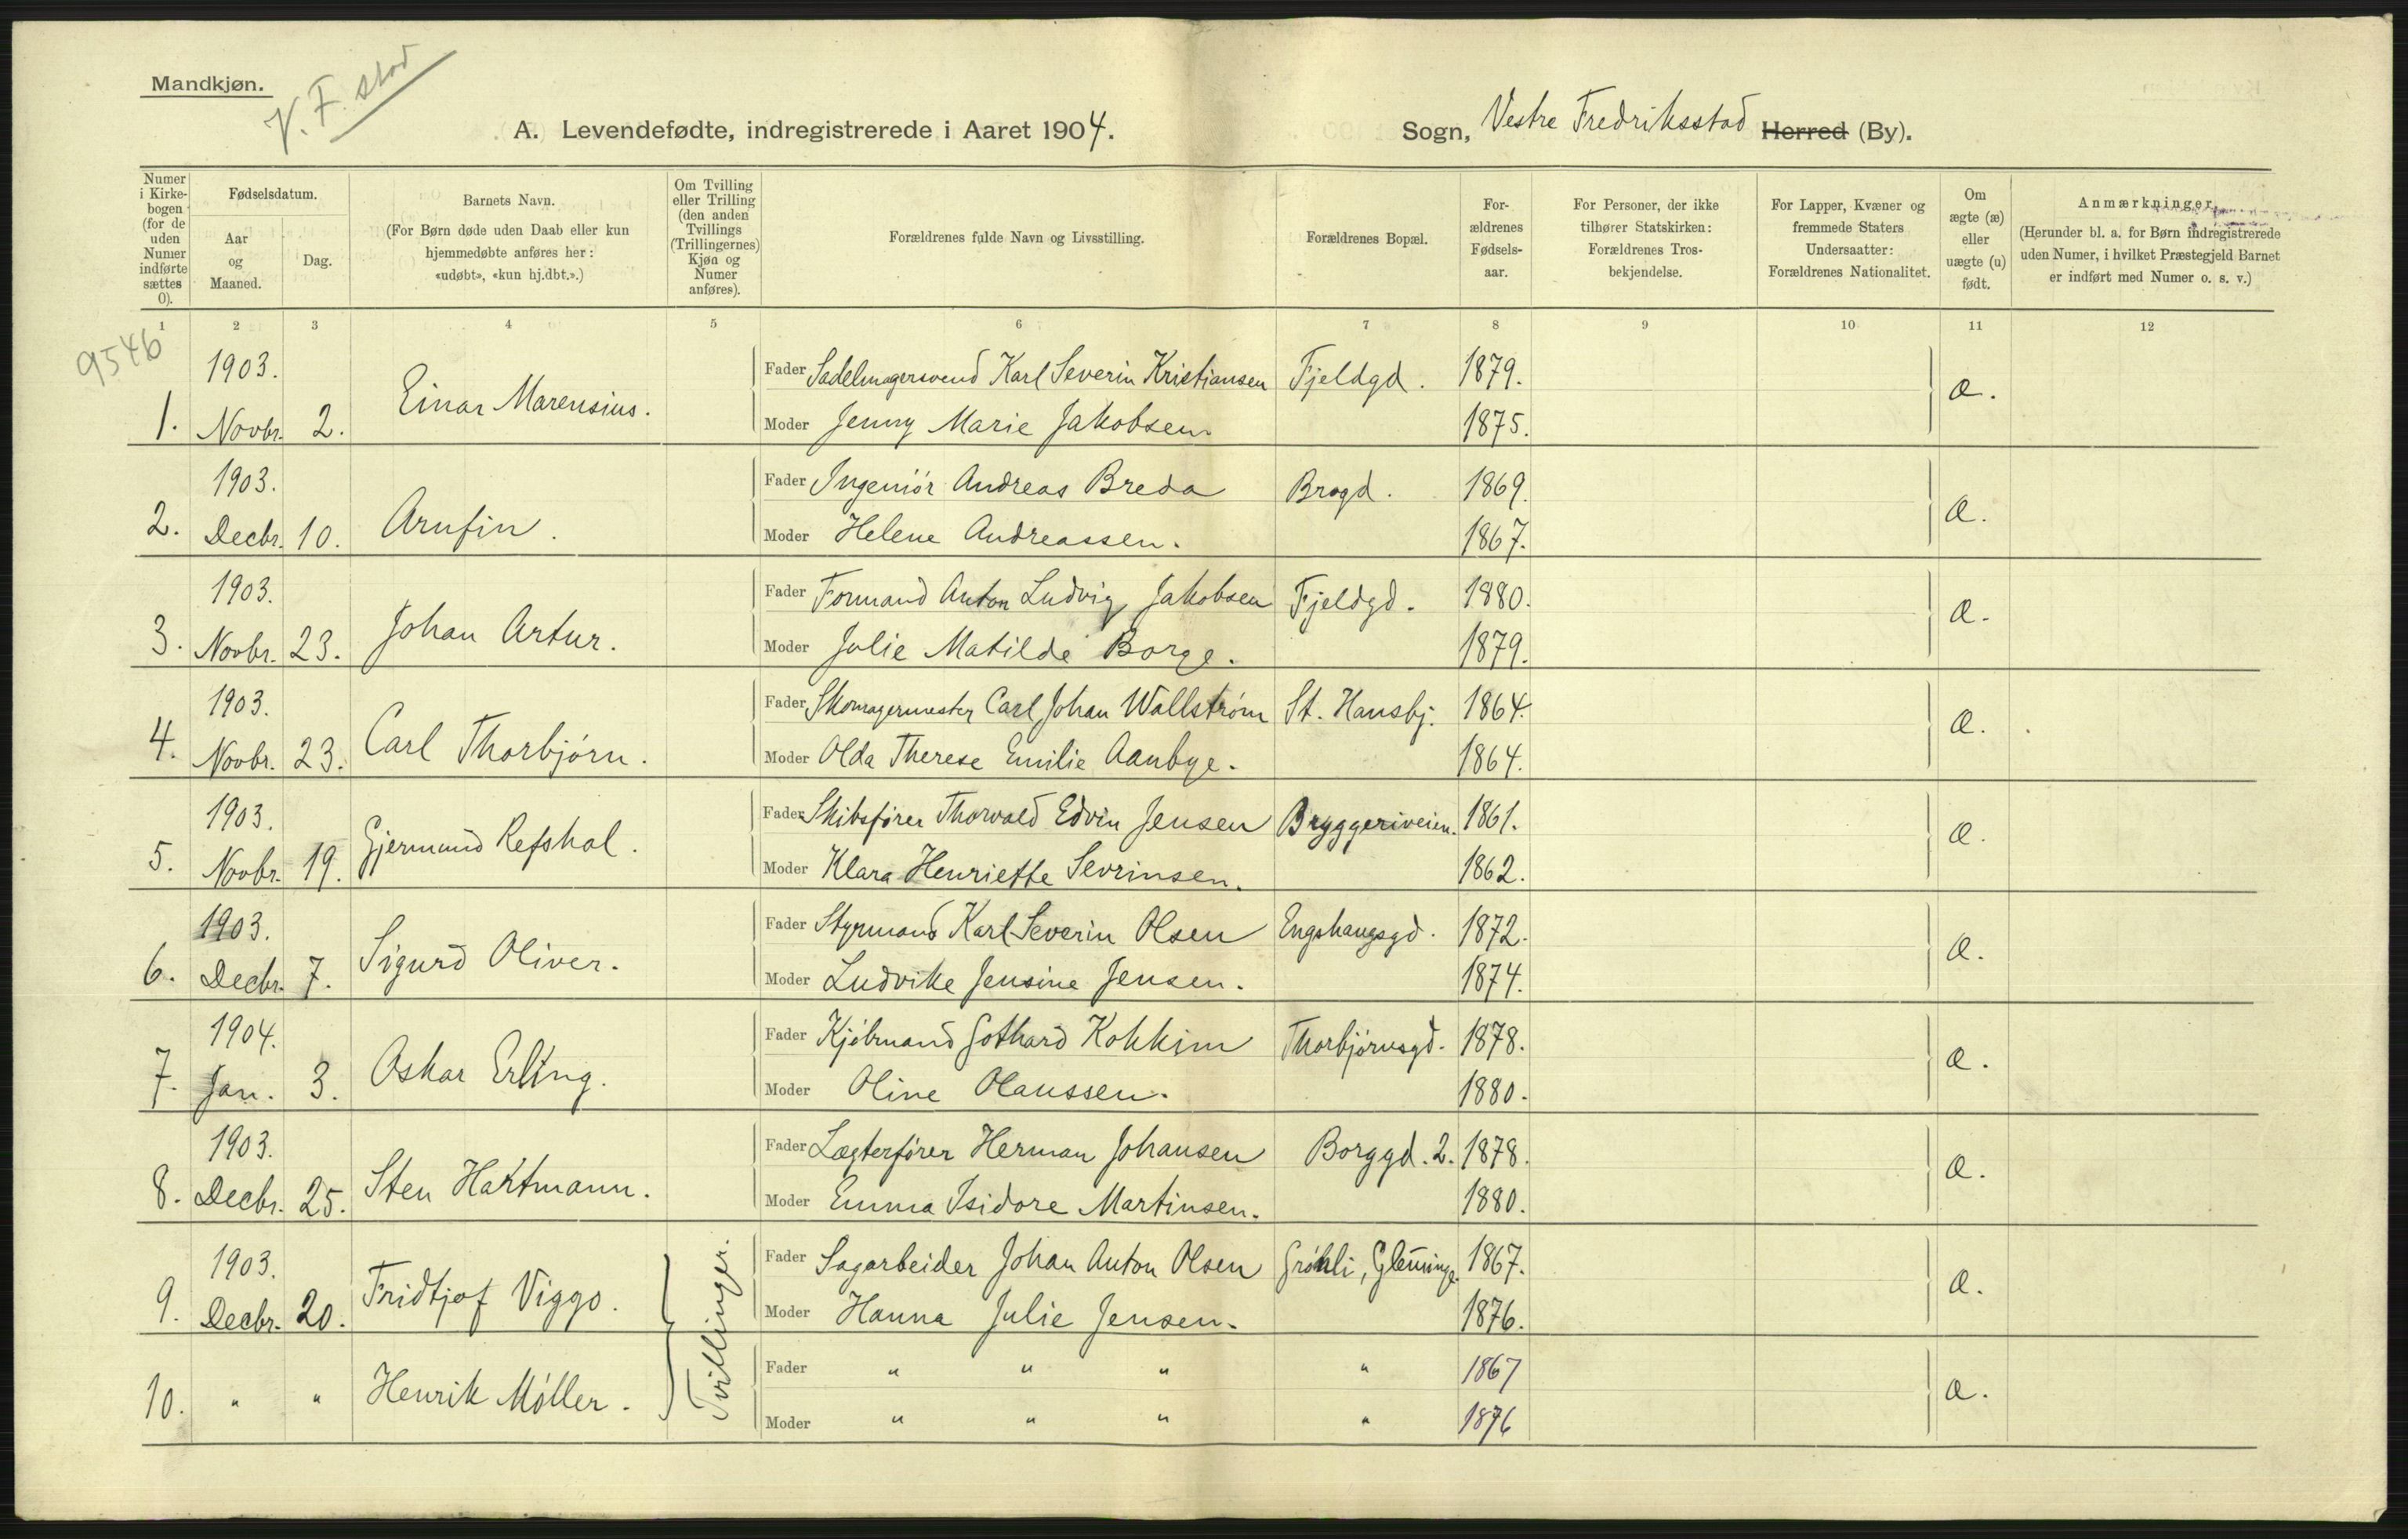 Mandkjøn.
V. F. stad
A. Levendefødte, indregistrerede i Aaret 1904.
Sogn, Vestre Fredriksstad Herred (By).
Numer i Kirkebogen (for de uden Numer indførte sættes 0).
Fødselsdatum.
Aar og Maaned.
Dag.
Barnets Navn.
(For Børn døde uden Daab eller kun hjemmedøbte anføres her: «udøbt», «kun hj.dbt.».)
Om Tvilling eller Trilling (den anden Tvillings (Trillingernes) Kjøn og Numer anføres).
Forældrenes fulde Navn og Livsstilling.
Forældrenes Bopæl.
Forældrenes Fødselsaar.
For Personer, der ikke tilhører Statskirken: Forældrenes Trosbekjendelse.
For Lapper, Kvæner og fremmede Staters Undersaatter: Forældrenes Nationalitet.
Om ægte (æ) eller uægte (u) født.
Anmærkninger
(Herunder bl. a. for Børn indregistrerede uden Numer, i hvilket Præstegjeld Barnet er indført med Numer o. s. v.)
1 2 3 4 5 6 7 8 9 10 11 12
9546
1903. Fader Sadelmagersvend Karl Severin Kristiansen Fjeldgd. 1879.
1. Novbr. 2. Einar Marensius. Moder Jenny Marie Jakobsen. 1875. æ.
1903. Fader Ingeniör Andreas Breda Brogd. 1869.
2. Decbr. 10. Arnfin. Moder Helene Andreassen. 1867. æ.
1903. Fader Formand Anton Ludvig Jakobsen Fjeldgd. 1880.
3. Novbr. 23. Johan Artur. Moder Julie Matilde Borge. 1879. æ.
1903. Fader Skomagermester Carl Johan Wallstrøm St. Hansbj. 1864.
4. Novbr. 23. Carl Thorbjørn. Moder Olda Therese Emilie Aanbye. 1864. æ.
1903. Fader Skibsfører Thorvald Edvin Jensen Bryggeriveien. 1861.
5. Novbr. 19. Gjermund Refshal. Moder Klara Henriette Sevrinsen. 1862. æ.
1903. Fader Styrmand Karl Severin Olsen Engshaugsgd. 1872.
6. Decbr. 7. Sigurd Oliver. Moder Ludvike Jensine Jensen. 1874. æ.
1904. Fader Kjöbmand Gothard Kokkim Thorbjørnsgd. 1878.
7. Jan. 3. Oskar Erling. Moder Oline Olaussen. 1880. æ.
1903. Fader Lægterfører Herman Johansen Borggd. 2. 1878.
8. Decbr. 25. Sten Hartmann. Moder Emma Isidore Martinsen. 1880. æ.
1903. Fader Sagarbeider Johan Anton Olsen Grøhli, Glemminge. 1867.
9. Decbr. 20. Fridtjof Viggo. Tvillinger. Moder Hanna Julie Jensen. 1876. æ.
Fader " " " " 1867
10. " " Henrik Møller. Moder " " " " 1876 æ.